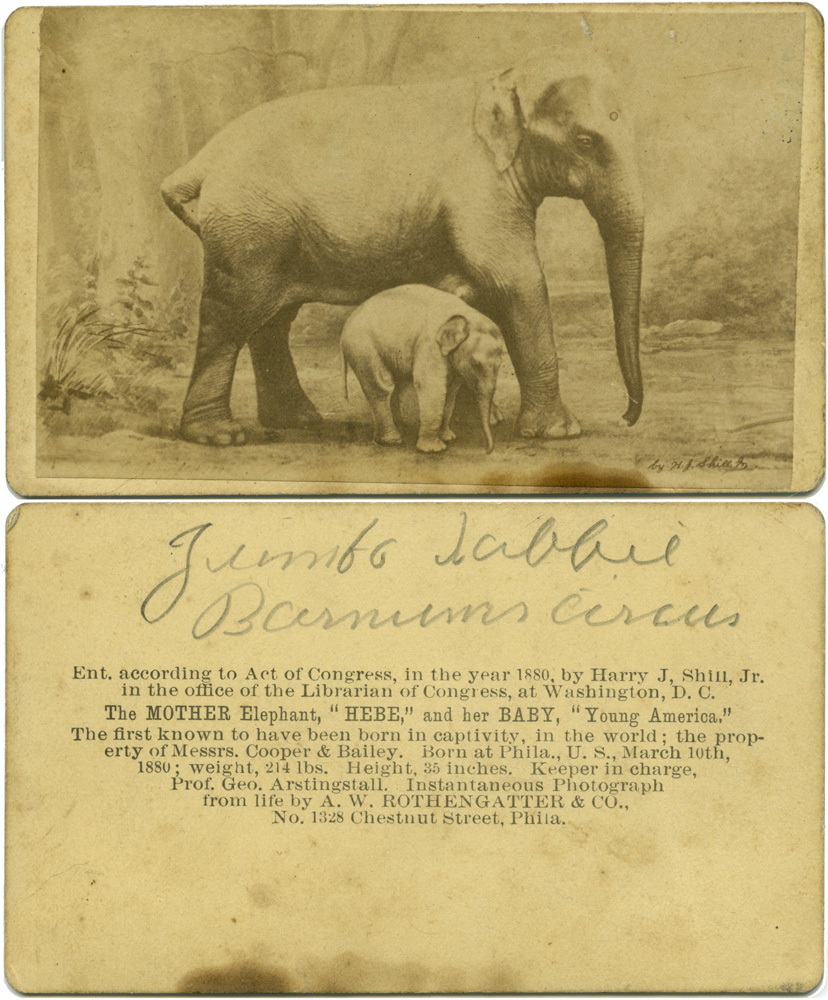 by H. J. Shill Jr.
Jumbo
Barnums circus
Ent. according to Act of Congress, in the year 1880, by Harry J, Shill, Jr.
in the office of the Librarian of Congress, at Washington, D. C.
The MOTHER Elephant, "HEBE," and her BABY, "Young America."
The first known to have been born in captivity, in the world; the prop-
erty of Messrs. Cooper & Bailey. Born at Phila., U. S., March 10th,
1880; weight, 214 lbs. Height, 35 inches. Keeper in charge,
Prof. Geo. Arstingstall. Instantaneous Photograph
from life by A. W. ROTHENGATTER & CO.,
No. 1328 Chestnut Street, Phila.